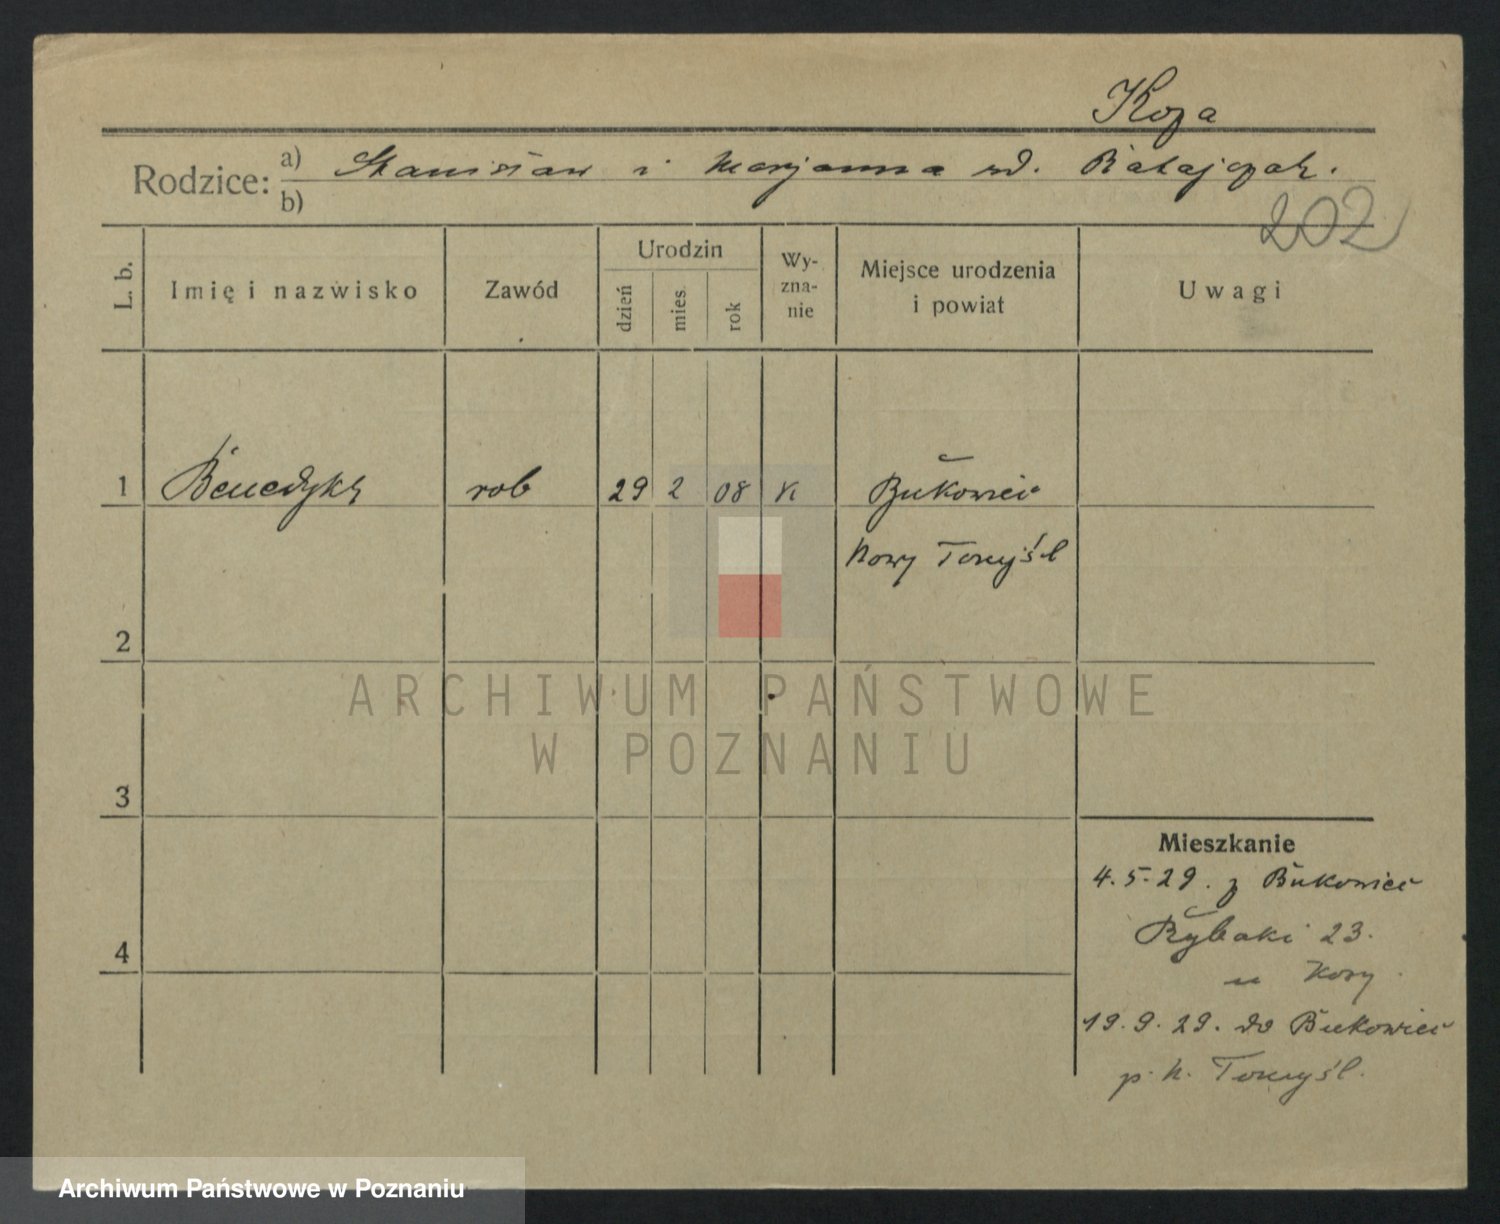 Koza
Rodzice: a) Stanisław i Marjanna rd. Ratajczak.
b)
202
L. b. Imię i nazwisko Zawód Urodzin dzień mies. rok Wy-zna-nie Miejsce urodzenia i powiat Uwagi
1 Benedykt rob 29 2 08 K Bukowiec
Nowy Tomyśl
2
ARCHIWUM PAŃSTWOWE
W POZNANIU
3
Mieszkanie
4.5.29. z Bukowiec
Rybaki 23.
4
u Kozy.
19.9.29. do Bukowiec
p. N. Tomyśl.
Archiwum Państwowe w Poznaniu